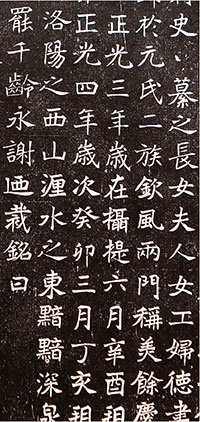 史之長女夫人女工婦德書
於元氏二族欽風兩門稱美餘慶
正光三年歲在攝提六月辛酉朔
正光四年歲次癸卯三月丁亥朔
洛陽之西山瀍水之東黯黯深泉
罷千齡永謝迺裁銘曰